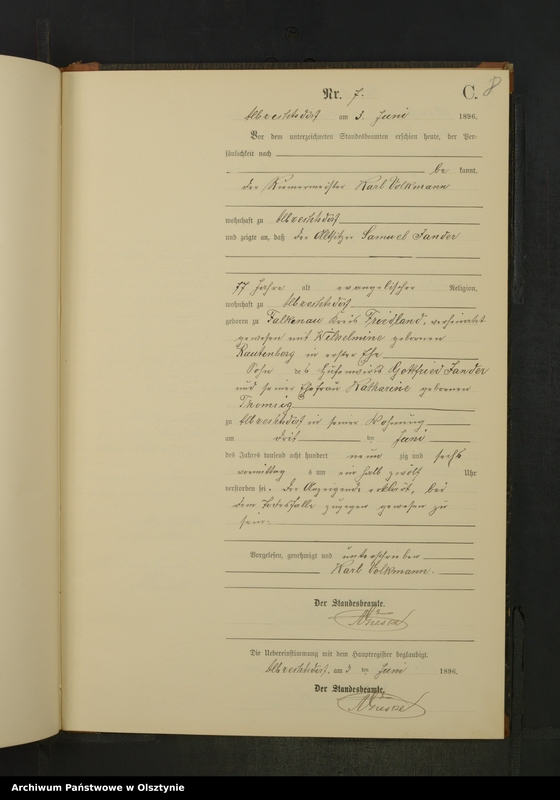 8
Nr. 7. C.
Albrechtsdorf am 3. Juni 1896.
Vor dem unterzeichneten Standesbeamten erschien heute, der Per-
sönlichkeit nach
be kannt,
der Riemermeister Karl Volkmann
wohnhaft zu Albrechtsdorf
und zeigte an, daß der Altsitzer Samuel Jander
77 Jahre alt evangelischer Religion,
wohnhaft zu Albrechtsdorf
geboren zu Falkenau Kreis Friedland, verheiratet
gewesen mit Wilhelmine geborenen
Rautenberg in erster Ehe
Sohn des Hufenwirts Gottfried Jander
und seiner Ehefrau Katharine geborenen
zu Albrechtsdorf in seiner Wohnung
am drit ten Juni
des Jahres tausend acht hundert neun zig und sechs
vormittag s um ein halb zwölf Uhr
verstorben sei. Der Anzeigende erklärt, bei
dem Todesfalle zugegen gewesen zu
sein.
Vorgelesen, genehmigt und unterschrieben
Karl Volkmann.
Der Standesbeamte.
Die Uebereinstimmung mit dem Hauptregister beglaubigt.
Albrechtsdorf, am 3 ten Juni 1896.
Der Standesbeamte.
Archiwum Państwowe w Olsztynie